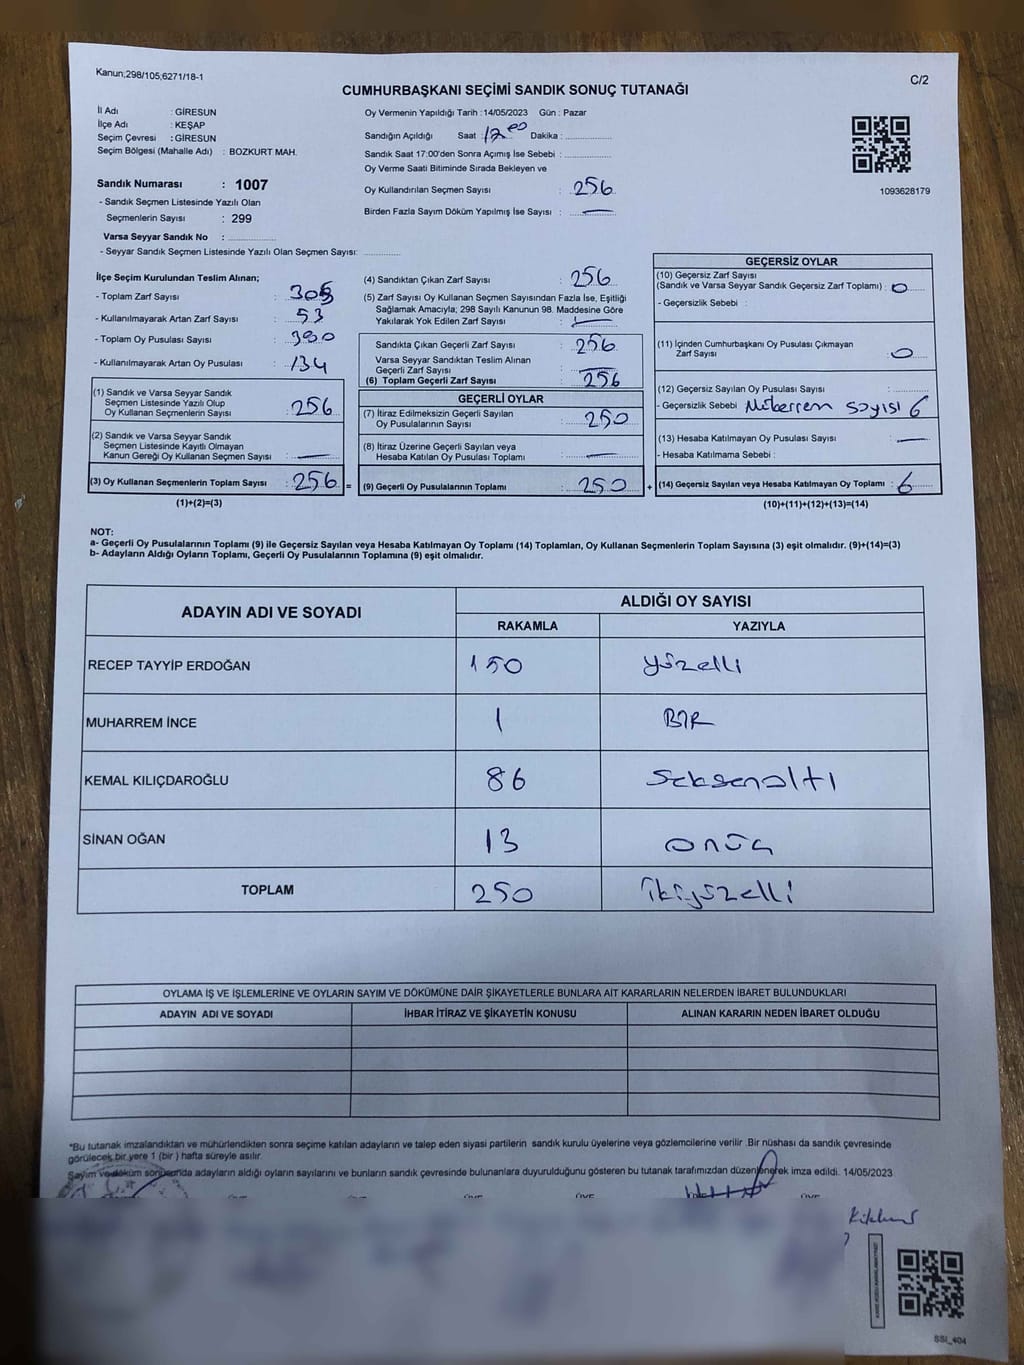 Kanun;298/105;6271/18-1
C/2
CUMHURBAŞKANI SEÇİMİ SANDIK SONUÇ TUTANAĞI
İl Adı : GİRESUN
İlçe Adı : KEŞAP
Seçim Çevresi : GİRESUN
Seçim Bölgesi (Mahalle Adı) : BOZKURT MAH.
Oy Vermenin Yapıldığı Tarih : 14/05/2023 Gün : Pazar
Sandığın Açıldığı Saat : Dakika :
Sandık Saat 17:00'den Sonra Açımış İse Sebebi :
Oy Verme Saati Bitiminde Sırada Bekleyen ve
Oy Kullandırılan Seçmen Sayısı : 256
Birden Fazla Sayım Döküm Yapılmış İse Sayısı : —
1093628179
Sandık Numarası : 1007
- Sandık Seçmen Listesinde Yazılı Olan
Seçmenlerin Sayısı : 299
Varsa Seyyar Sandık No :
- Seyyar Sandık Seçmen Listesinde Yazılı Olan Seçmen Sayısı:
İlçe Seçim Kurulundan Teslim Alınan;
- Toplam Zarf Sayısı :
- Kullanılmayarak Artan Zarf Sayısı : 53
- Toplam Oy Pusulası Sayısı : 390
- Kullanılmayarak Artan Oy Pusulası : 134
(1) Sandık ve Varsa Seyyar Sandık
Seçmen Listesinde Yazılı Olup
Oy Kullanan Seçmenlerin Sayısı : 256
(2) Sandık ve Varsa Seyyar Sandık
Seçmen Listesinde Kayıtlı Olmayan
Kanun Gereği Oy Kullanan Seçmen Sayısı : —
(3) Oy Kullanan Seçmenlerin Toplam Sayısı : 256 =
(1)+(2)=(3)
(4) Sandıktan Çıkan Zarf Sayısı : 256
(5) Zarf Sayısı Oy Kullanan Seçmen Sayısından Fazla İse, Eşitliği
Sağlamak Amacıyla; 298 Sayılı Kanunun 98. Maddesine Göre
Yakılarak Yok Edilen Zarf Sayısı : —
Sandıkta Çıkan Geçerli Zarf Sayısı : 256
Varsa Seyyar Sandıktan Teslim Alınan
Geçerli Zarf Sayısı : —
(6) Toplam Geçerli Zarf Sayısı : 256
GEÇERLİ OYLAR
(7) İtiraz Edilmeksizin Geçerli Sayılan
Oy Pusulalarının Sayısı : 250
(8) İtiraz Üzerine Geçerli Sayılan veya
Hesaba Katılan Oy Pusulası Toplamı : —
(9) Geçerli Oy Pusulalarının Toplamı : 250 +
GEÇERSİZ OYLAR
(10) Geçersiz Zarf Sayısı
(Sandık ve Varsa Seyyar Sandık Geçersiz Zarf Toplamı) : 0
- Geçersizlik Sebebi :
(11) İçinden Cumhurbaşkanı Oy Pusulası Çıkmayan
Zarf Sayısı : 0
(12) Geçersiz Sayılan Oy Pusulası Sayısı :
- Geçersizlik Sebebi sayısı 6
(13) Hesaba Katılmayan Oy Pusulası Sayısı : —
- Hesaba Katılmama Sebebi :
(14) Geçersiz Sayılan veya Hesaba Katılmayan Oy Toplamı : 6
(10)+(11)+(12)+(13)=(14)
NOT:
a- Geçerli Oy Pusulalarının Toplamı (9) ile Geçersiz Sayılan veya Hesaba Katılmayan Oy Toplamı (14) Toplamları, Oy Kullanan Seçmenlerin Toplam Sayısına (3) eşit olmalıdır. (9)+(14)=(3)
b- Adayların Aldığı Oyların Toplamı, Geçerli Oy Pusulalarının Toplamına (9) eşit olmalıdır.
ADAYIN ADI VE SOYADI ALDIĞI OY SAYISI
RAKAMLA YAZIYLA
RECEP TAYYİP ERDOĞAN 150 yüzelli
MUHARREM İNCE 1 BİR
KEMAL KILIÇDAROĞLU 86 Seksenaltı
SİNAN OĞAN 13 onüç
TOPLAM 250 ikiyüzelli
OYLAMA İŞ VE İŞLEMLERİNE VE OYLARIN SAYIM VE DÖKÜMÜNE DAİR ŞİKAYETLERLE BUNLARA AİT KARARLARIN NELERDEN İBARET BULUNDUKLARI
ADAYIN ADI VE SOYADI İHBAR İTİRAZ VE ŞİKAYETİN KONUSU ALINAN KARARIN NEDEN İBARET OLDUĞU
*Bu tutanak imzalandıktan ve mühürlendikten sonra seçime katılan adayların ve talep eden siyasi partilerin sandık kurulu üyelerine veya gözlemcilerine verilir .Bir nüshası da sandık çevresinde
görülecek bir yere 1 (bir ) hafta süreyle asılır.
Sayım ve döküm sonucunda adayların aldığı oyların sayılarını ve bunların sandık çevresinde bulunanlara duyurulduğunu gösteren bu tutanak tarafımızdan düzenlenerek imza edildi. 14/05/2023
SSI_404